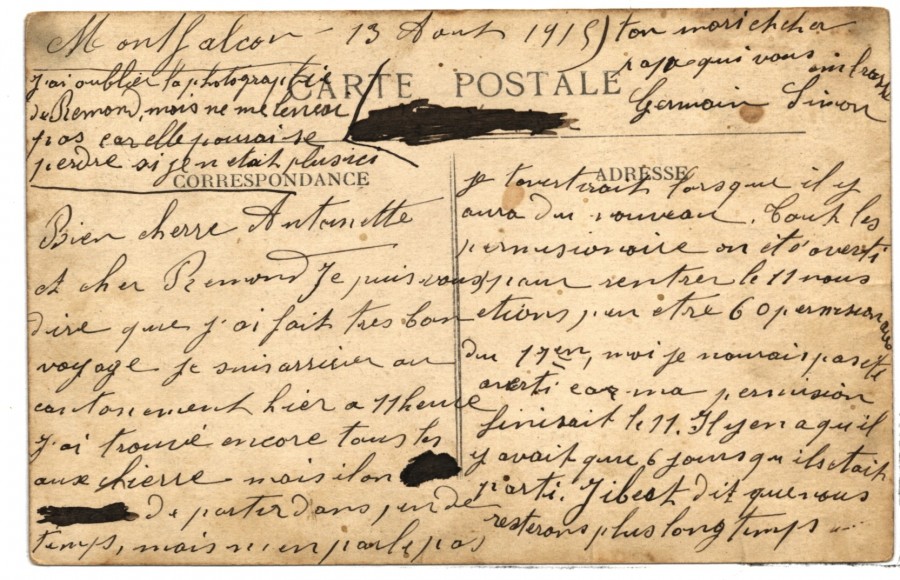 Montfalcon - 13 Aout 1915
CARTE POSTALE
CORRESPONDANCE
Bien cherre Antoinette
et cher Remond Je puis vous
dire que j'ai fait tres bon
voyage je suis arriver au
cantonement hier a 11 heure
J'ai trouvé encore tous les
aux mais il on
de partir dans peu de
temps, mais n'en parle pas
ADRESSE
je tavertirait lorsque il y
aura du nouveau. Tout les
permisionaire on été averti
pour rentrer le 11 nous
etions peu etre 60 permisionaire
du 17 en, moi je naurais pas été
averti car ma permision
finisait le 11. Il yen a qu'il
y avait que 6 jours qu ils etait
parti. dit que nous
resterons plus long temps
ton mari et cher
papa qui vous embrasse
Germain Simon
J'ai oublier ta photographie
de Remond, mais ne me
pas car elle pouraise
perdre si je n etait plus ici